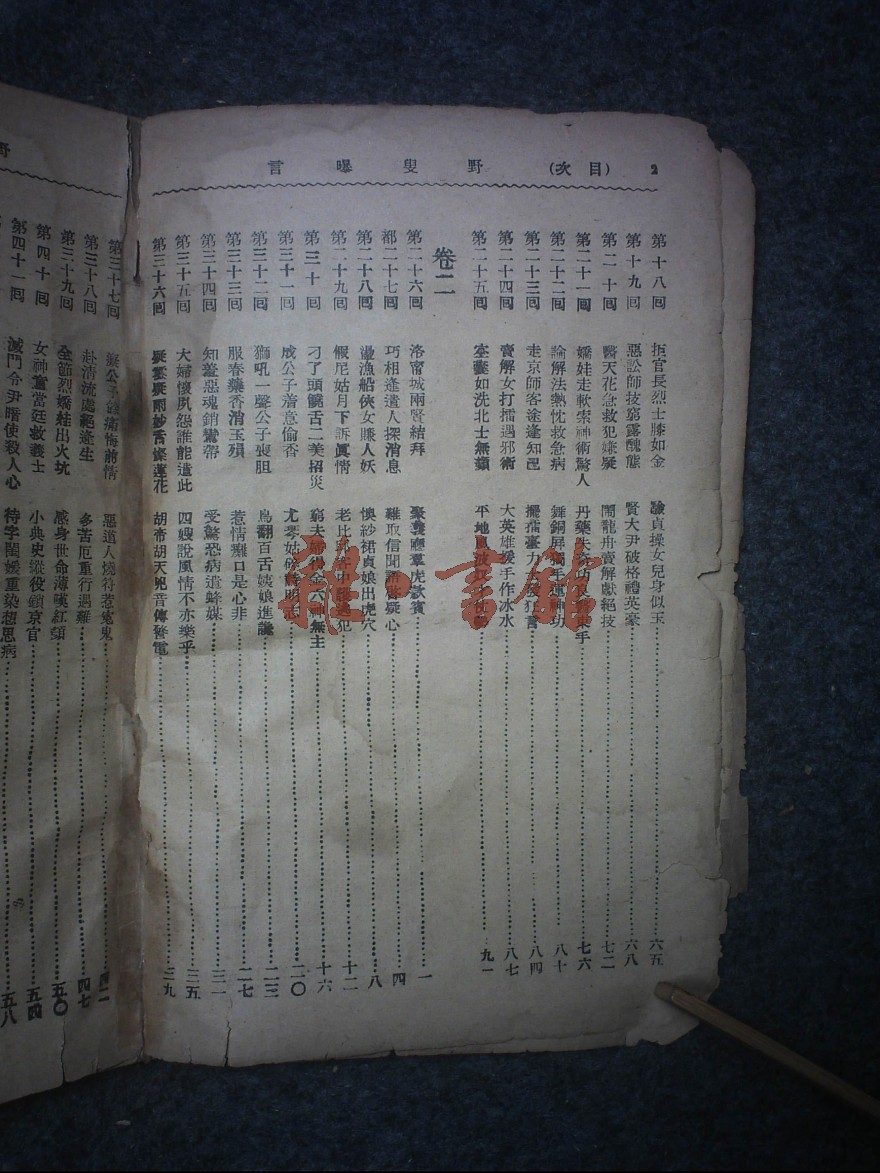 2 (目次) 野叟曝言
第十八回 拒官長烈士膝如金 驗貞操女兒身似玉 六五
第十九回 惡訟師技窮露醜態 賢大尹破格禮英豪 六八
第二十回 醫天花急救犯嫌疑 鬧龍舟賣解獻絕技 七二
第二十一回 嬌娃走軟索神術驚人 丹藥失 手 七六
第二十二回 論解法熱忱救急病 舞銅屏獨手運神功 八十
第二十三回 走京師客途逢知己 擺擂臺力士發狂言 八四
第二十四回 賣解女打擂遇邪術 大英雄援手作冰水 八七
第二十五回 室囊如洗北士無顏 平地風波 九一
卷二
第二十六回 洛甯城兩賢結拜 聚義廳羣虎款賓 一
都二十七回 巧相逢遣人探消息 難取信聞語啓疑心 四
第二十八回 盪漁船俠女賺人妖 懊紗裙貞娘出虎穴 八
第二十九回 假尼姑月下訴眞情 老比邱 犯 十二
第三十回 刁了頭饒舌二美招災 窮夫婦得金六神無主 十六
第三十一回 成公子着意偷香 尤琴姑 明志 二〇
第三十二回 獅吼一聲公子喪胆 鳥翻百舌姨娘進讒 二三
第三十三回 服春藥香消玉殞 惹情魔口是心非 二七
第三十四回 知羞惡魂銷鸞帶 受驚恐病遺蜂媒 三一
第三十五回 大婦懷夙怨誰能遣此 四嫂說風情不亦樂乎 三五
第三十六回 疑雲疑雨妙舌燦蓮花 胡帝胡天兇音傳警電 三九
第三十七回 公子 痛悔前情 惡道人燒符惹寃鬼 四二
第三十八回 赴清流處絕逢生 多苦厄重行遇難 四七
第三十九回 全節烈嬌娃出火坑 感身世命薄嘆紅顏 五〇
第四十回 女神童當廷救義士 小典史縱役鎖京官 五四
第四十一回 滅門令尹暗使殺人心 待字閨媛重染想思病 五八
雅書館